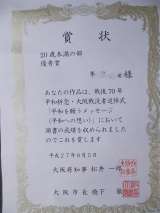 賞状
20歳未満の部
優秀賞
様
あなたの作品は、戦後70年
平和祈念・大阪戦没者追悼式
「平和を願うメッセージ
(平和への想い)」において
頭書の成績を収められましたので
これを賞します
平成27年8月
大阪府知事 松井一郎
大阪市長 橋下